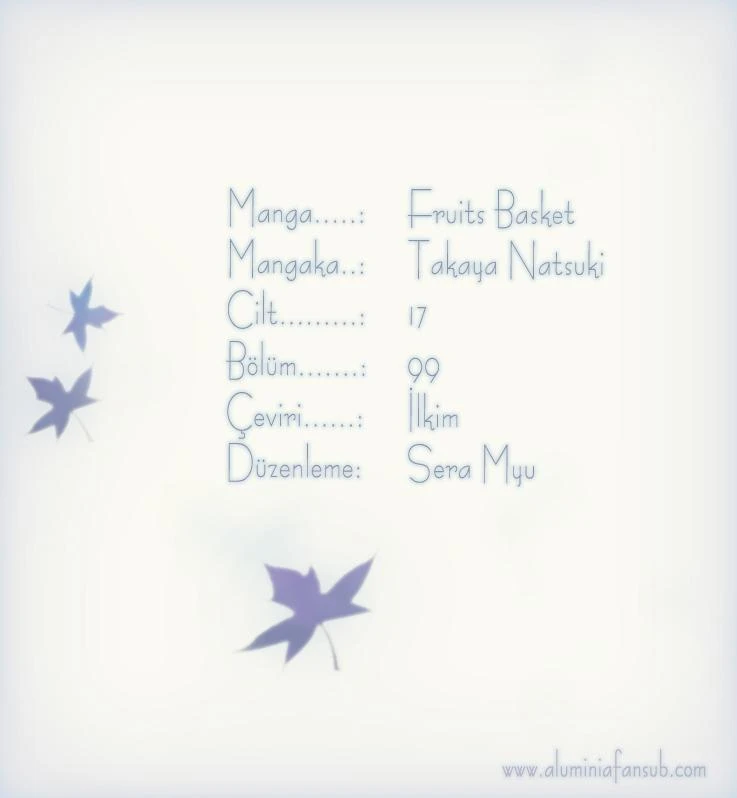 Manga.....: Fruits Basket
Mangaka..: Takaya Natsuki
Cilt.........: 17
Bölüm.......: 99
Çeviri......: İlkim
Düzenleme: Sera Myu
www.aluminiafansub.com